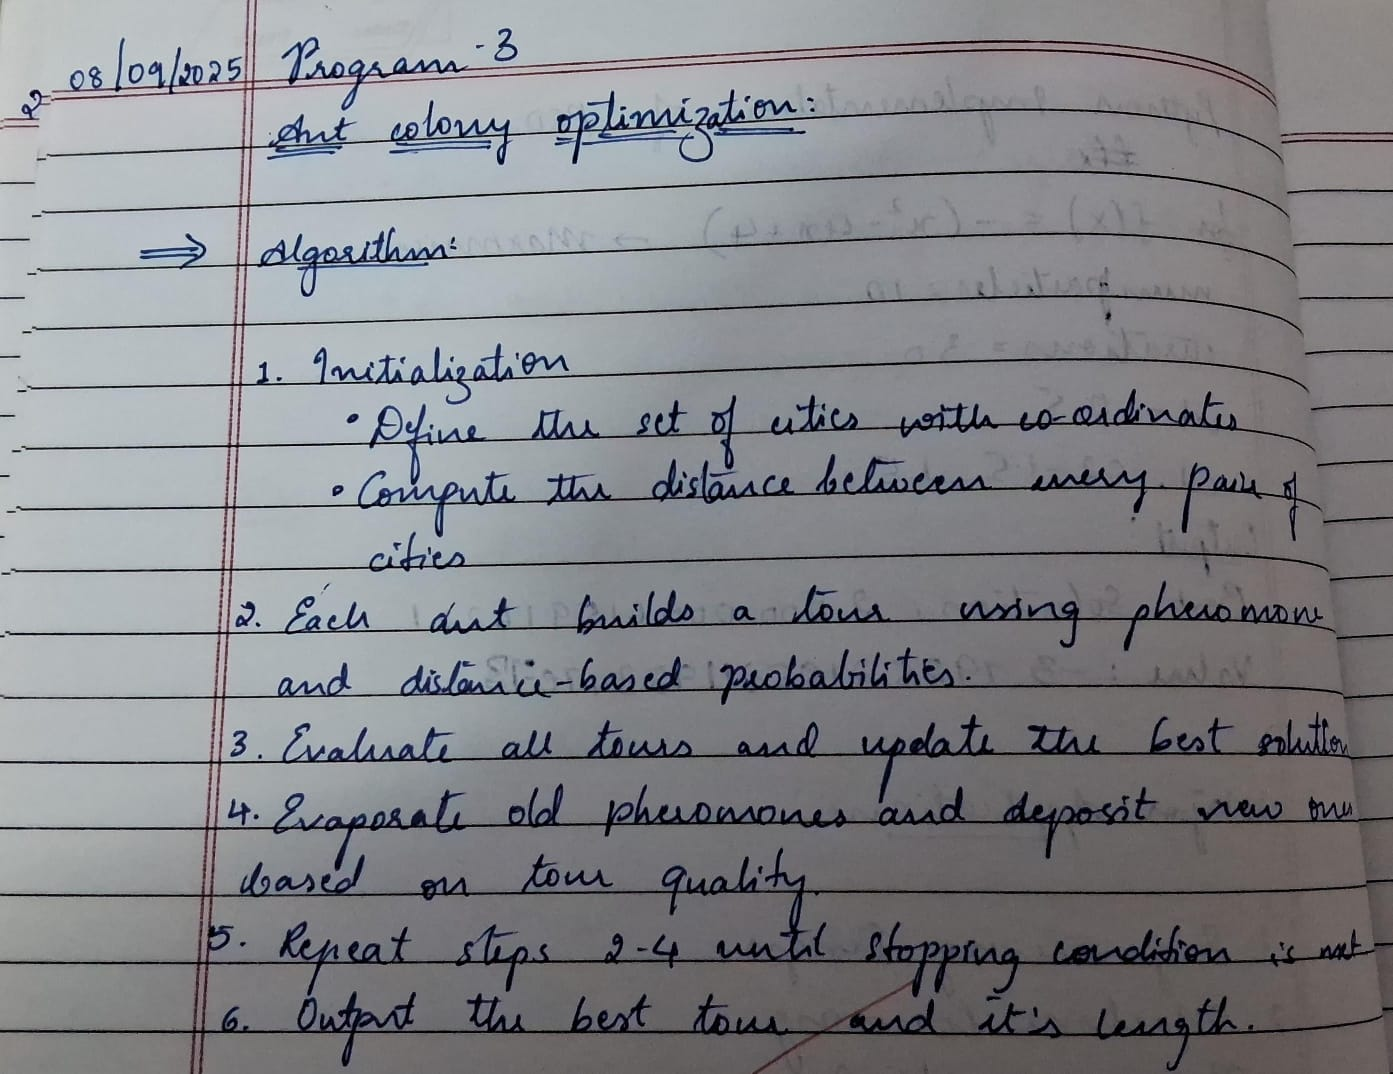 08/09/2025 Program-3
Ant colony optimization:
⇒ Algorithm:
1. Initialization
• Define the set of cities with co-ordinates
• Compute the distance between every pair of
cities
2. Each ant builds a tour using pheromone
and distance-based probabilities.
3. Evaluate all tours and update the best solution
4. Evaporate old pheromones and deposit new ones
based on tour quality.
5. Repeat steps 2-4 until stopping condition is met
6. Output the best tour and it's length.